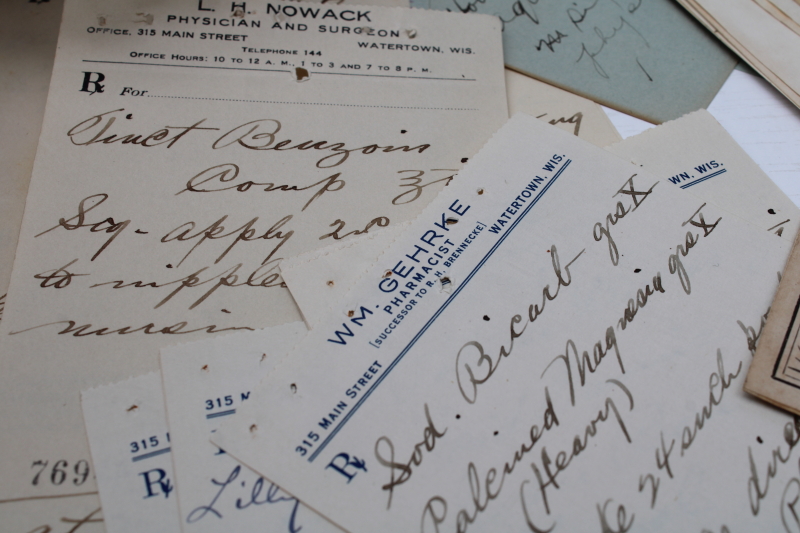 L. H. NOWACK
PHYSICIAN AND SURGEON
OFFICE, 315 MAIN STREET
TELEPHONE 144
WATERTOWN, WIS.
OFFICE HOURS: 10 TO 12 A. M., 1 TO 3 AND 7 TO 8 P. M.
℞ For
Tinct Benzoin
Comp ℥
Sig- apply
to nipple
nursin
769
WM. GEHRKE
PHARMACIST
(SUCCESSOR TO R. H. BRENNECKE)
315 MAIN STREET WATERTOWN, WIS.
℞ Sod. Bicarb grs X
Calcined Magnesia grs X
(Heavy)
24 such
dire
WN, WIS.
315 M
Lilly
315
℞
at